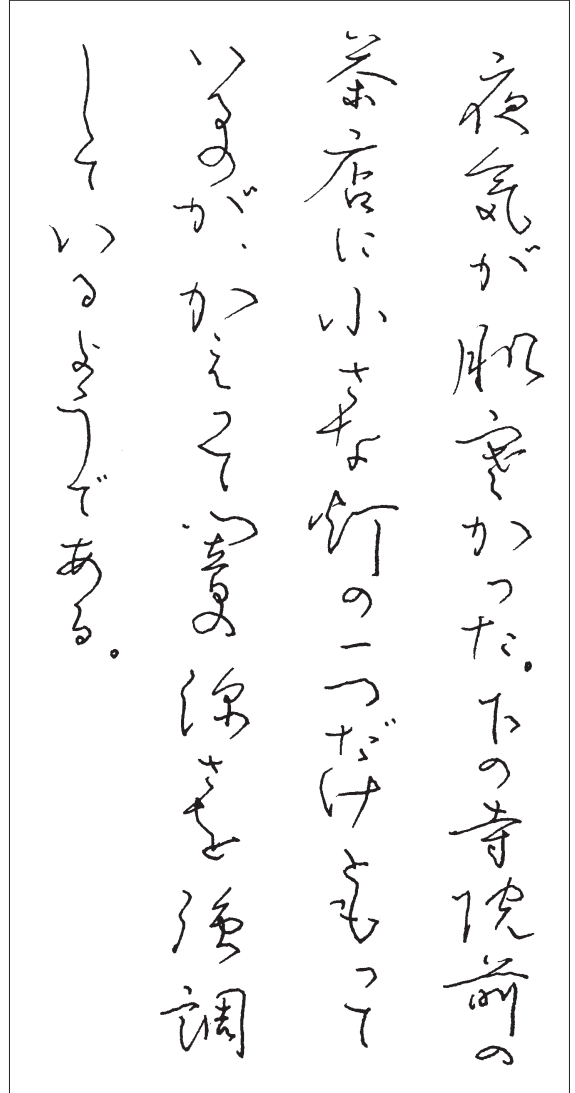 夜気が肌寒かった。下の寺院前の
茶店に小さな灯の一つだけともって
いるのが、かえって闇の深さを強調
しているようである。